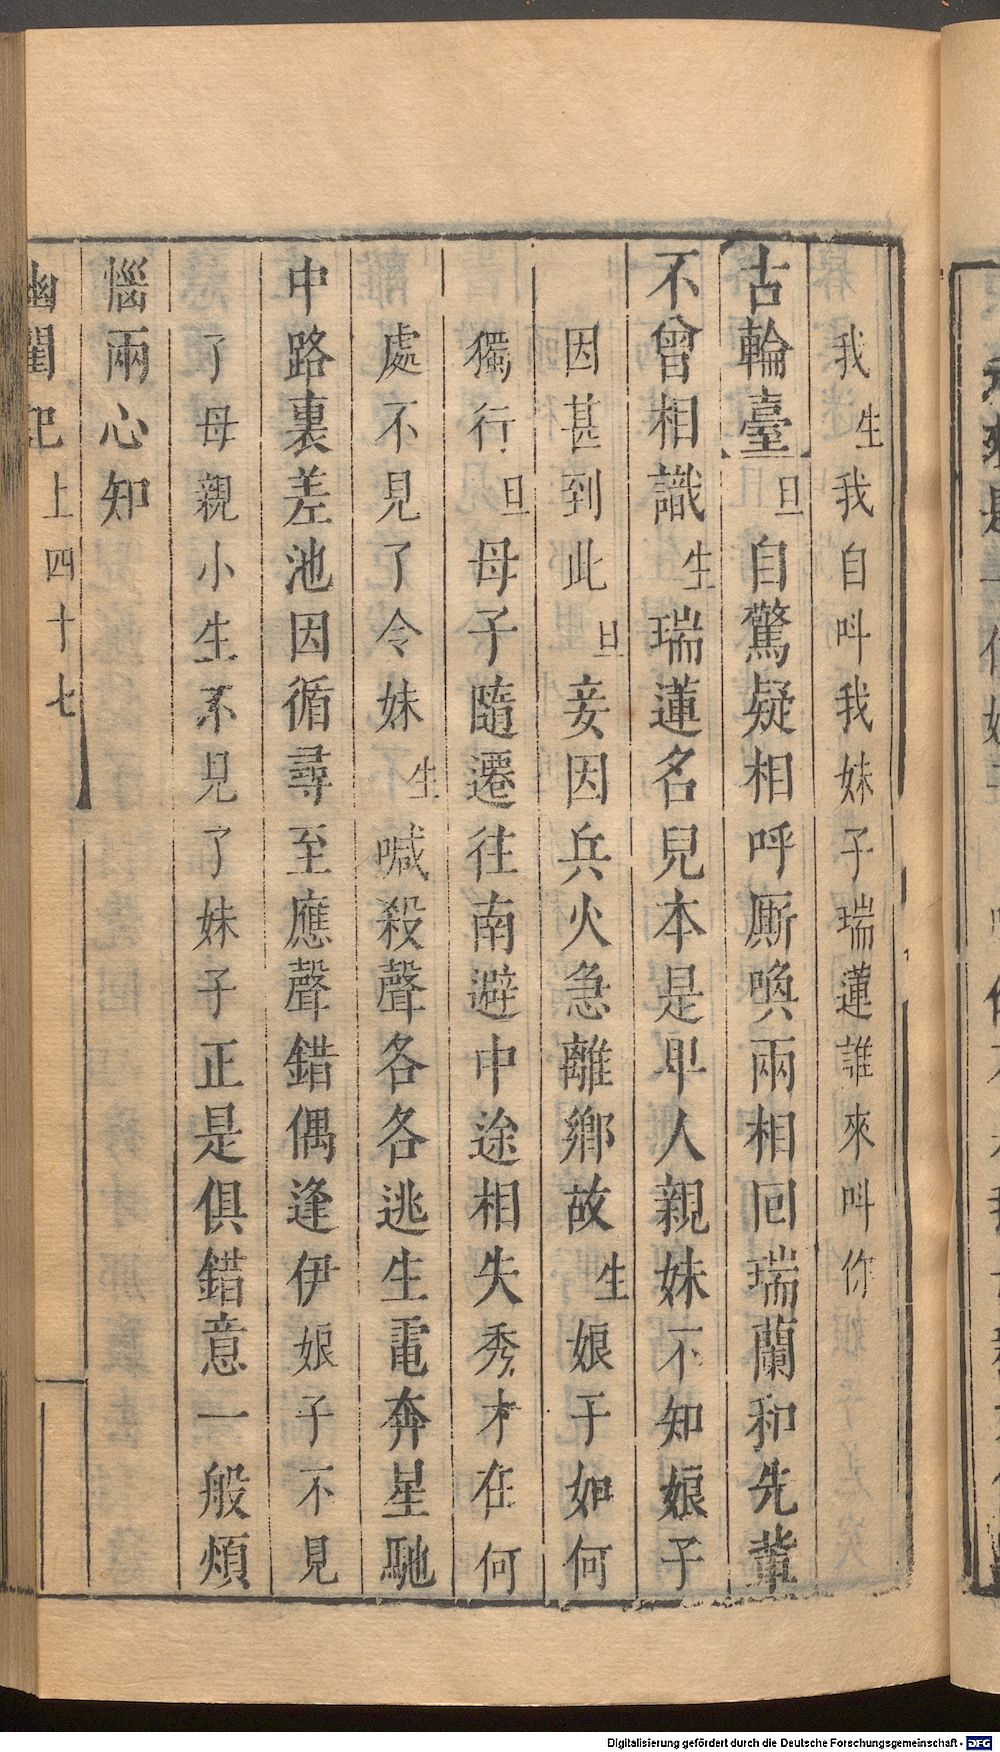 我生我自呌我妹子瑞蓮誰來呌你
古輪臺旦自驚疑相呼厮喚兩相回瑞蘭和先輩
不曾相識生瑞蓮名兒本是卑人親妹不知娘子
因甚到此旦妾因兵火急離鄉故生娘子如何
獨行旦母子隨遷往南避中途相失秀才在何
處不見了令妹生喊殺聲各各逃生電奔星馳
中路裏差池因循尋至應聲錯偶逢伊娘子不見
了母親小生不見了妹子正是俱錯意一般煩
惱兩心知
幽閨記 上 四十七
Digitalisierung gefördert durch die Deutsche Forschungsgemeinschaft - DFG